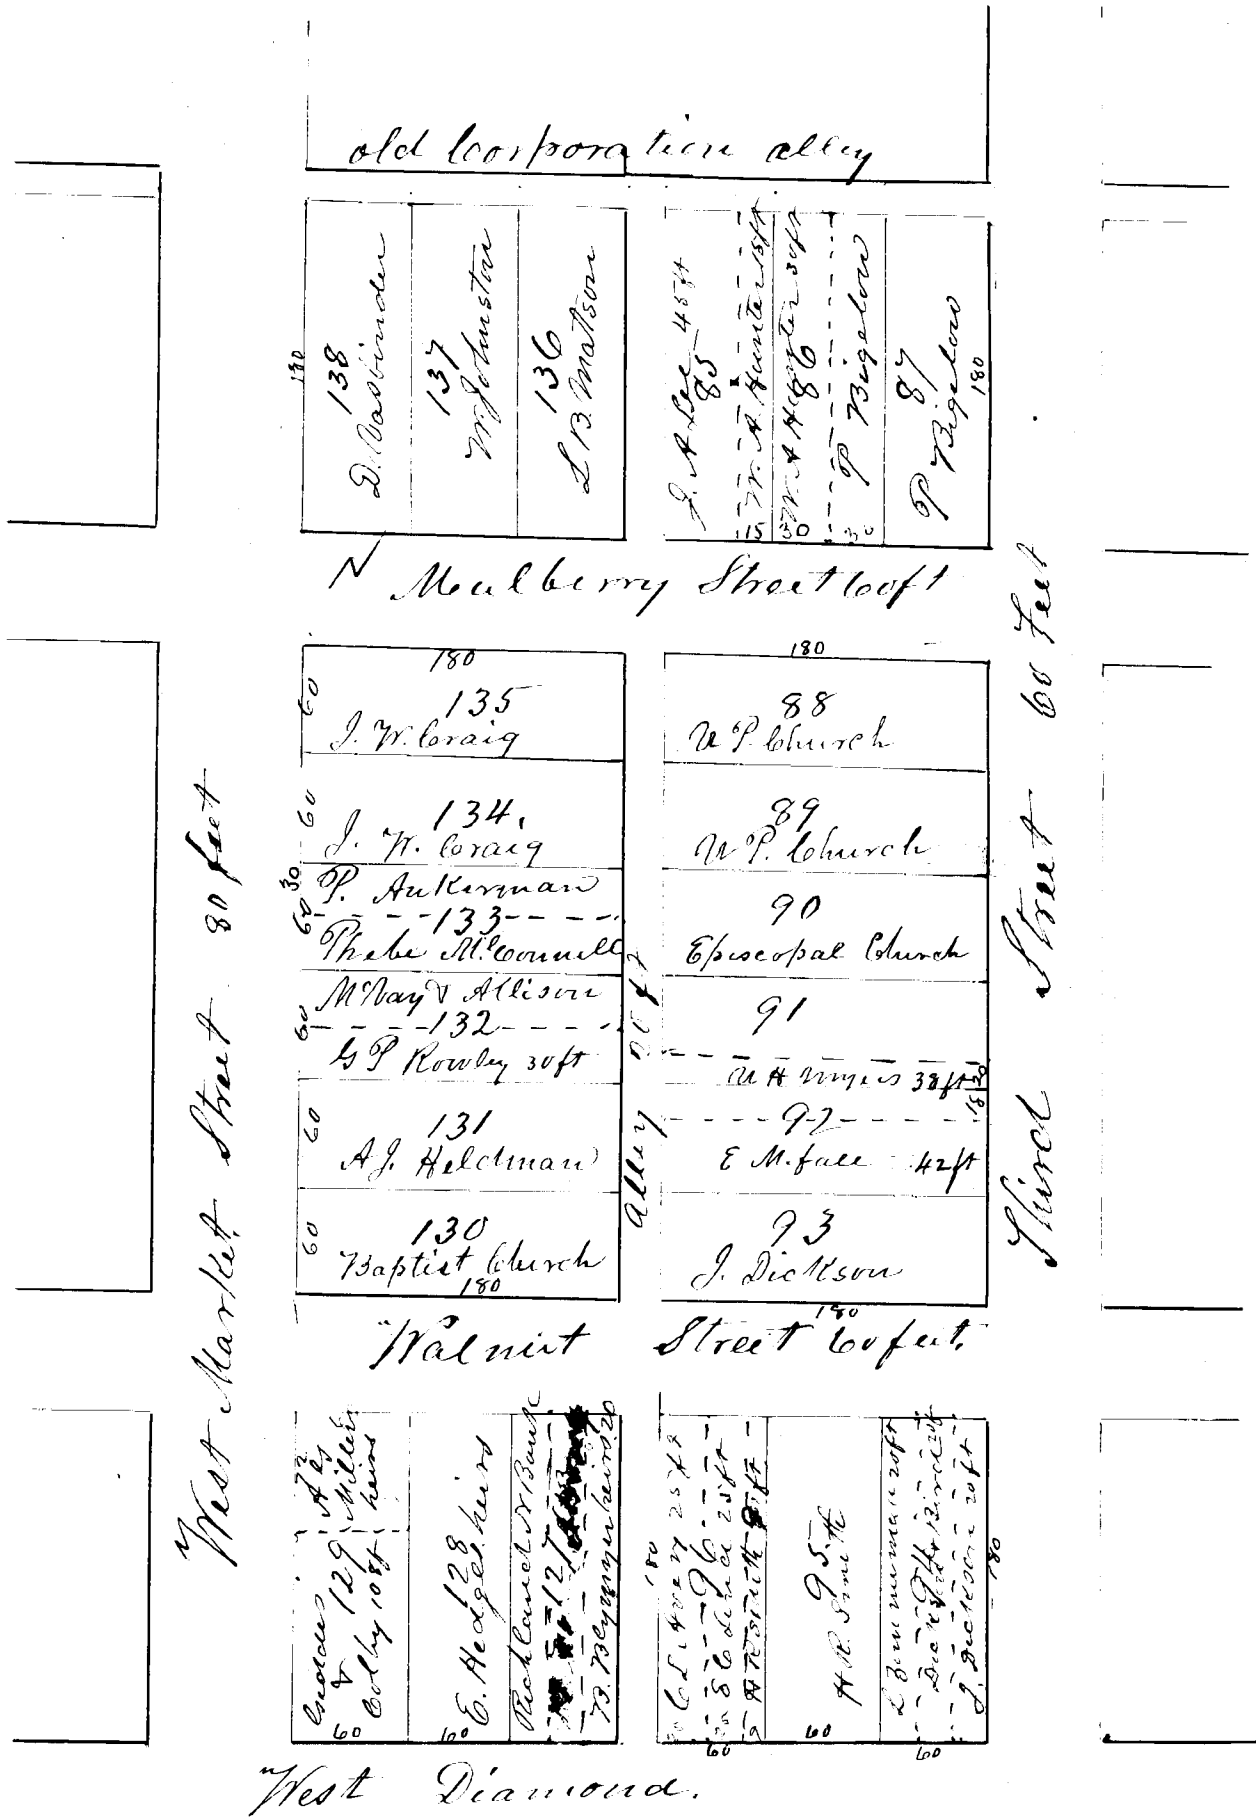 old Corporation alley
180
138
D. Vasbinder
137
W. Johnston
136
L B. Matson
J. A Lee 45ft
85
W. A Hunter 15ft
W. A Hunter 30ft
86
P Bigelow
87
P Bigelow
180
15
30
30
N Mulberry Street 60ft
180
60
135
J. W. Craig
60
134.
J. W. Craig
30
P. Aukerman
60
133
Phebe McConnell
McVay & Allison
60
132
G P Rowley 30ft
60
131
A J. Heldman
60
130
Baptist Church
180
Alley 20 ft
180
88
U P. Church
89
U P. Church
90
Episcopal Church
91
U H Myers 38ft
20
18
92
E M. fall 42ft
93
J. Dickson
180
West Market Street 80 feet
Third Street 60 Feet
Walnut Street 60 feet.
Miller
heirs
Geddes
& 129
Colby 108ft
60
128
E. Hedges heirs
60
Richland N Bank
127
B. Blymyer heirs 20
180
C L Avery 25ft
96
25ft
H R Smith
60
95
H R Smith
60
L Zimmerman 20ft
94
J. Dickson 20ft
60
180
West Diamond.